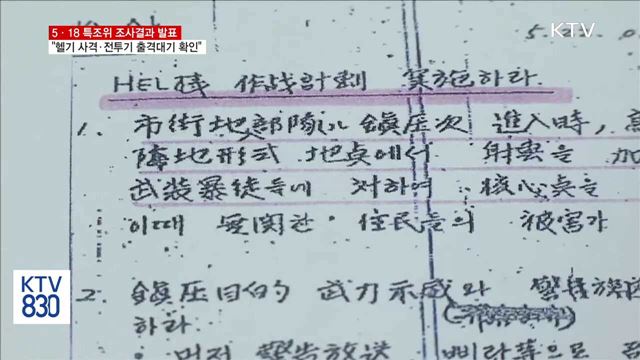 5·18 특조위 조사결과 발표
"헬기 사격·전투기 출격대기 확인"
KTV
HEL機 作戰計劃 實施하라
1. 市街地 部隊 鎭压次 進入時,
地形 地点에서 射擊을 加
武装暴徒들에 対하여 核心点을
이때 無関한 住民들의 被害가
KTV
830
2. 鎮圧目的 武力示威와 警
하라.
먼저 警告放送 삐라等으로